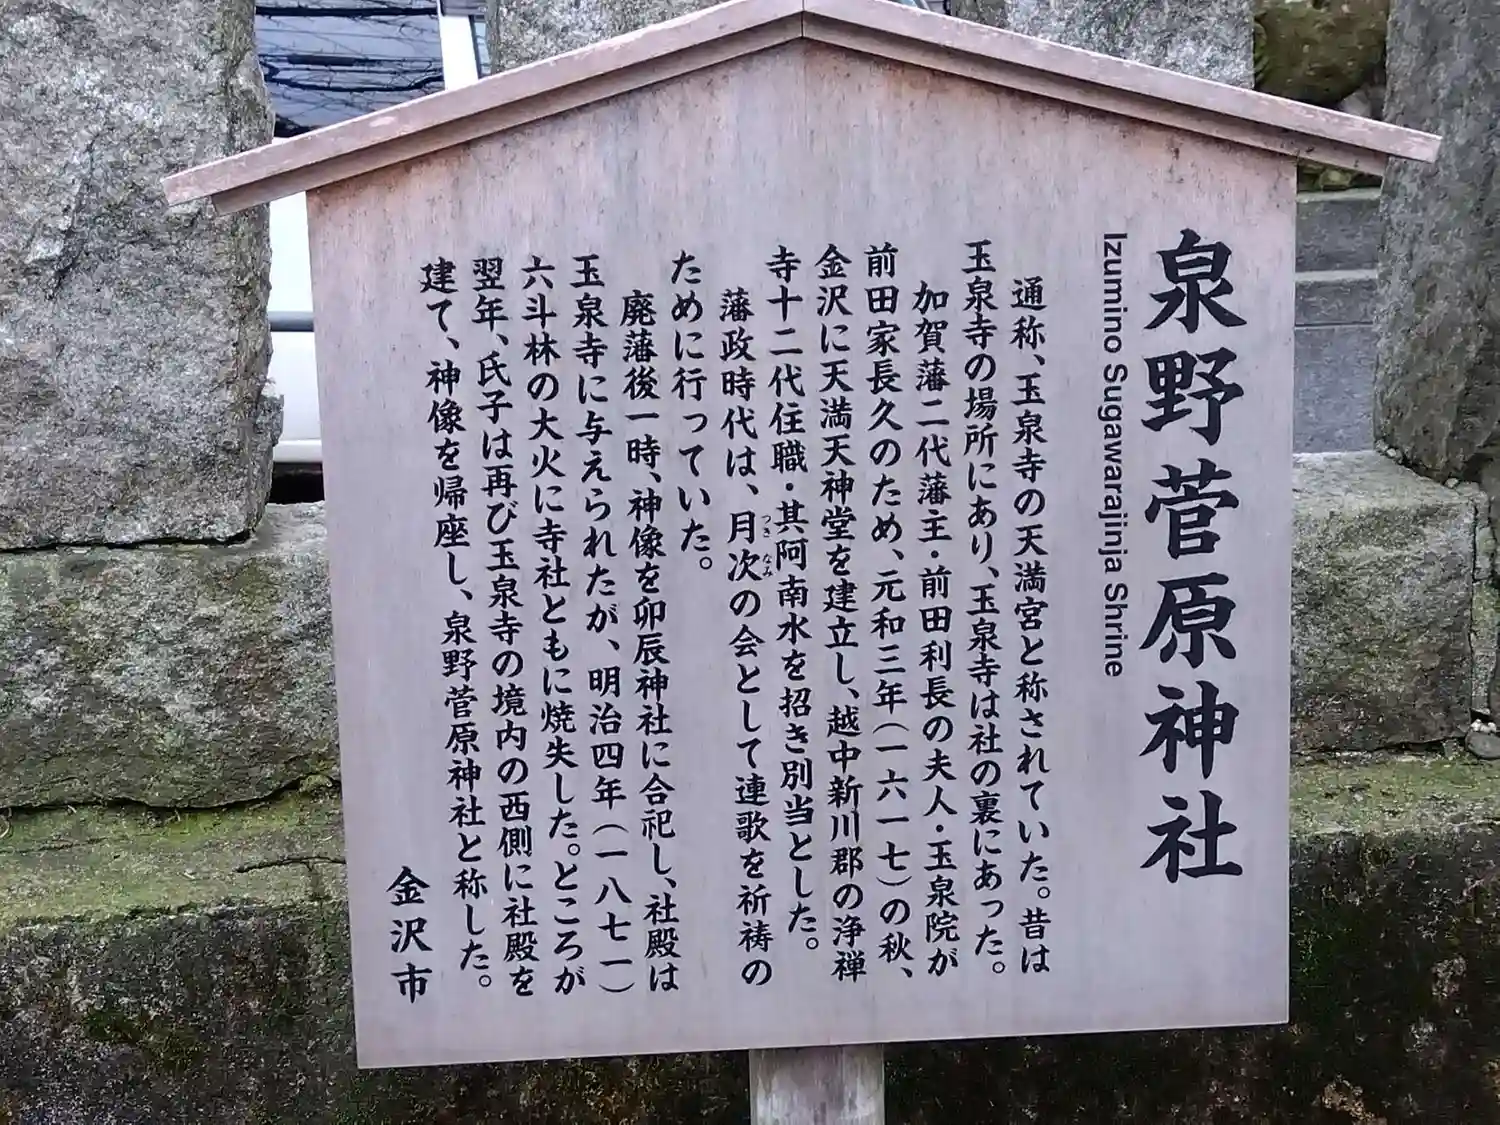 泉野菅原神社
Izumino Sugawarajinja Shrine
通称、玉泉寺の天満宮と称されていた。昔は
玉泉寺の場所にあり、玉泉寺は社の裏にあった。
加賀藩二代藩主・前田利長の夫人・玉泉院が
前田家長久のため、元和三年(一六一七)の秋、
金沢に天満天神堂を建立し、越中新川郡の浄禅
寺十二代住職・其阿南水を招き別当とした。
藩政時代は、月次の会として連歌を祈祷の
つきなみ
ために行っていた。
廃藩後一時、神像を卯辰神社に合祀し、社殿は
玉泉寺に与えられたが、明治四年(一八七一)
六斗林の大火に寺社ともに焼失した。ところが
翌年、氏子は再び玉泉寺の境内の西側に社殿を
建て、神像を帰座し、泉野菅原神社と称した。
金沢市